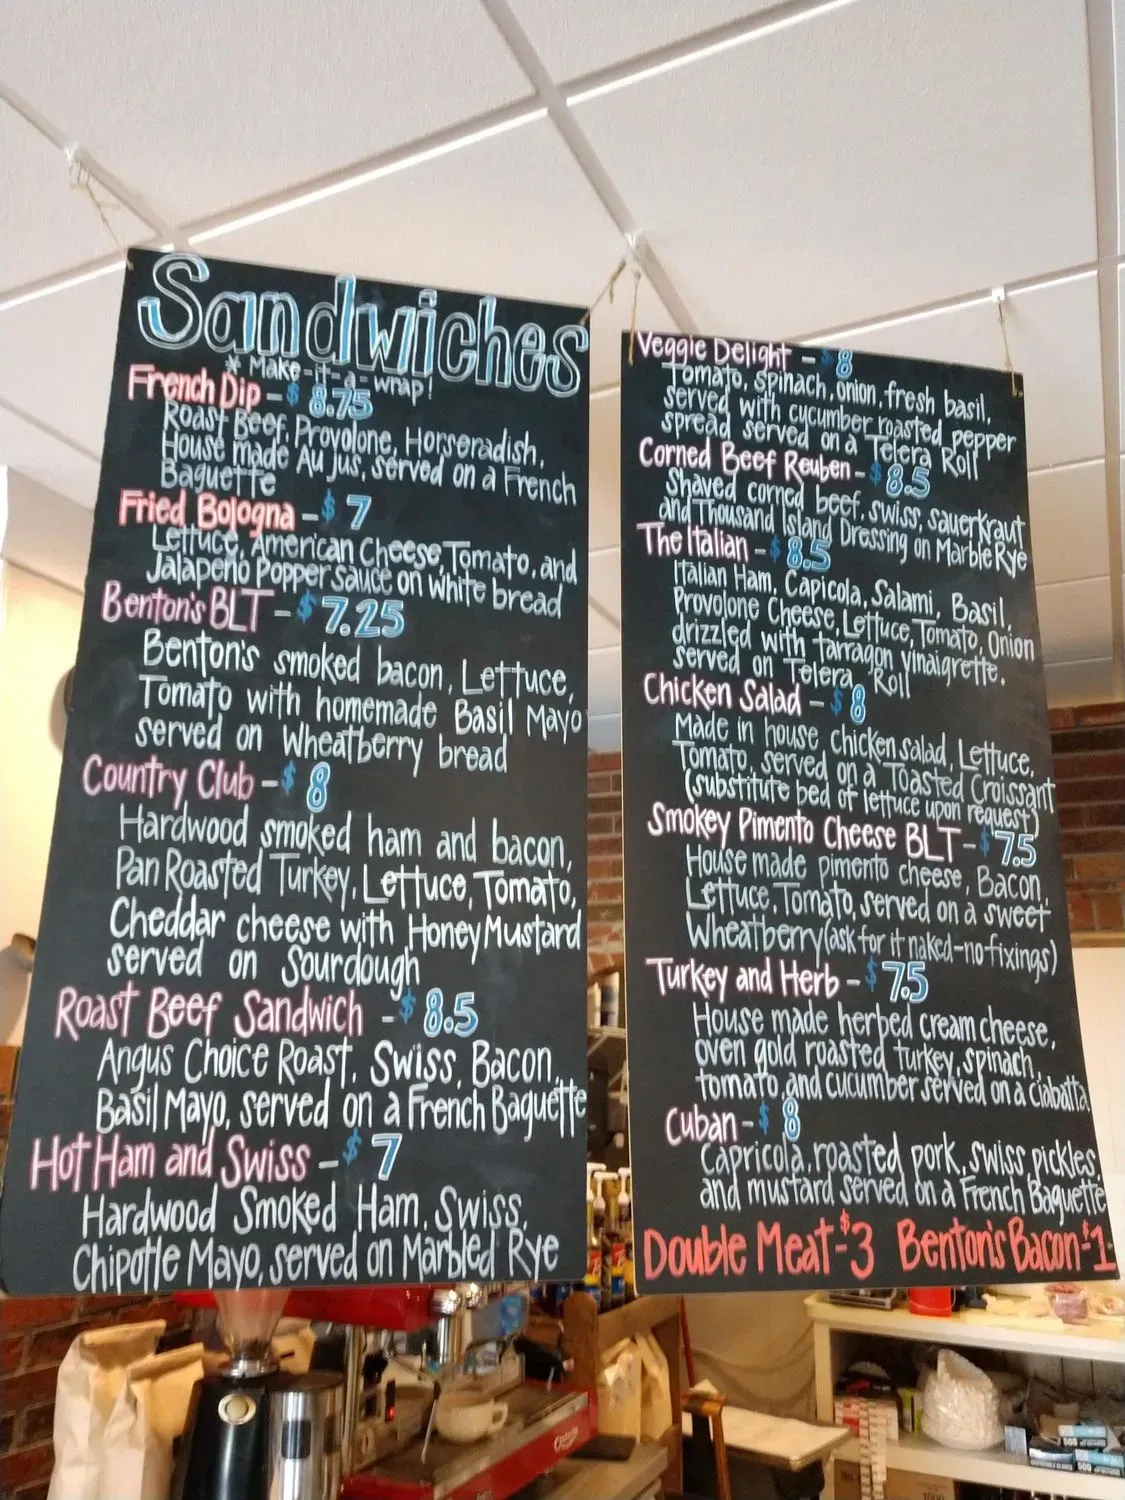 Sandwiches
* Make-it-a-wrap!
French Dip - $8.75
Roast Beef, Provolone, Horseradish,
House made Au Jus, served on a French
Baguette
Fried Bologna - $7
Lettuce, American Cheese, Tomato, and
Jalapeño Popper sauce on white bread
Benton's BLT - $7.25
Benton's smoked bacon, Lettuce,
Tomato with homemade Basil Mayo
served on Wheatberry bread
Country Club - $8
Hardwood smoked ham and bacon,
Pan Roasted Turkey, Lettuce, Tomato,
Cheddar cheese with Honey Mustard
served on Sourdough
Roast Beef Sandwich - $8.5
Angus Choice Roast, Swiss, Bacon,
Basil Mayo, served on a French Baguette
Hot Ham and Swiss - $7
Hardwood Smoked Ham, Swiss,
Chipotle Mayo, served on Marbled Rye
Veggie Delight - $8
Tomato, spinach, onion, fresh basil,
served with cucumber roasted pepper
spread served on a Telera Roll
Corned Beef Reuben - $8.5
Shaved corned beef, swiss, sauerkraut
and Thousand Island Dressing on Marble Rye
The Italian - $8.5
Italian Ham, Capicola, Salami, Basil,
Provolone Cheese, Lettuce, Tomato, Onion
drizzled with tarragon vinaigrette.
served on Telera Roll
Chicken Salad - $8
Made in house chicken salad, Lettuce,
Tomato, served on a Toasted Croissant
(substitute bed of lettuce upon request)
Smokey Pimento Cheese BLT - $7.5
House made pimento cheese, Bacon,
Lettuce, Tomato, served on a sweet
Wheatberry (ask for it naked-no fixings)
Turkey and Herb - $7.5
House made herbed cream cheese,
oven gold roasted turkey, spinach,
tomato, and cucumber served on a ciabatta
Cuban - $8
Capricola, roasted pork, swiss, pickles,
and mustard served on a French Baguette
Double Meat - $3 Benton's Bacon - $1